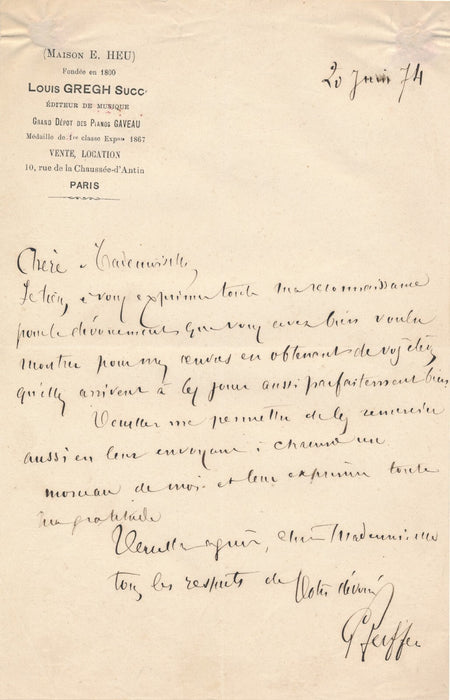 (MAISON E. HEU)
Fondée en 1800
LOUIS GREGH SUCC
ÉDITEUR DE MUSIQUE
GRAND DÉPOT DES PIANOS GAVEAU
Médaille de 1re classe Expon 1867
VENTE, LOCATION
10, rue de la Chaussée-d'Antin
PARIS
20 Juin 74
Chère Mademoiselle,
Je tiens à vous exprimer toute ma reconnaissance
pour le dévouement que vous avez bien voulu
montrer pour mes œuvres en obtenant de vos élèves
qu'elles arrivent à les jouer aussi parfaitement bien
Veuillez me permettre de les remercier
aussi en leur envoyant à chacune un
morceau de moi et leur exprimer toute
ma gratitude
Veuillez agréer, chère Mademoiselle
tous les respects de Votre dévoué
G Pfeiffer